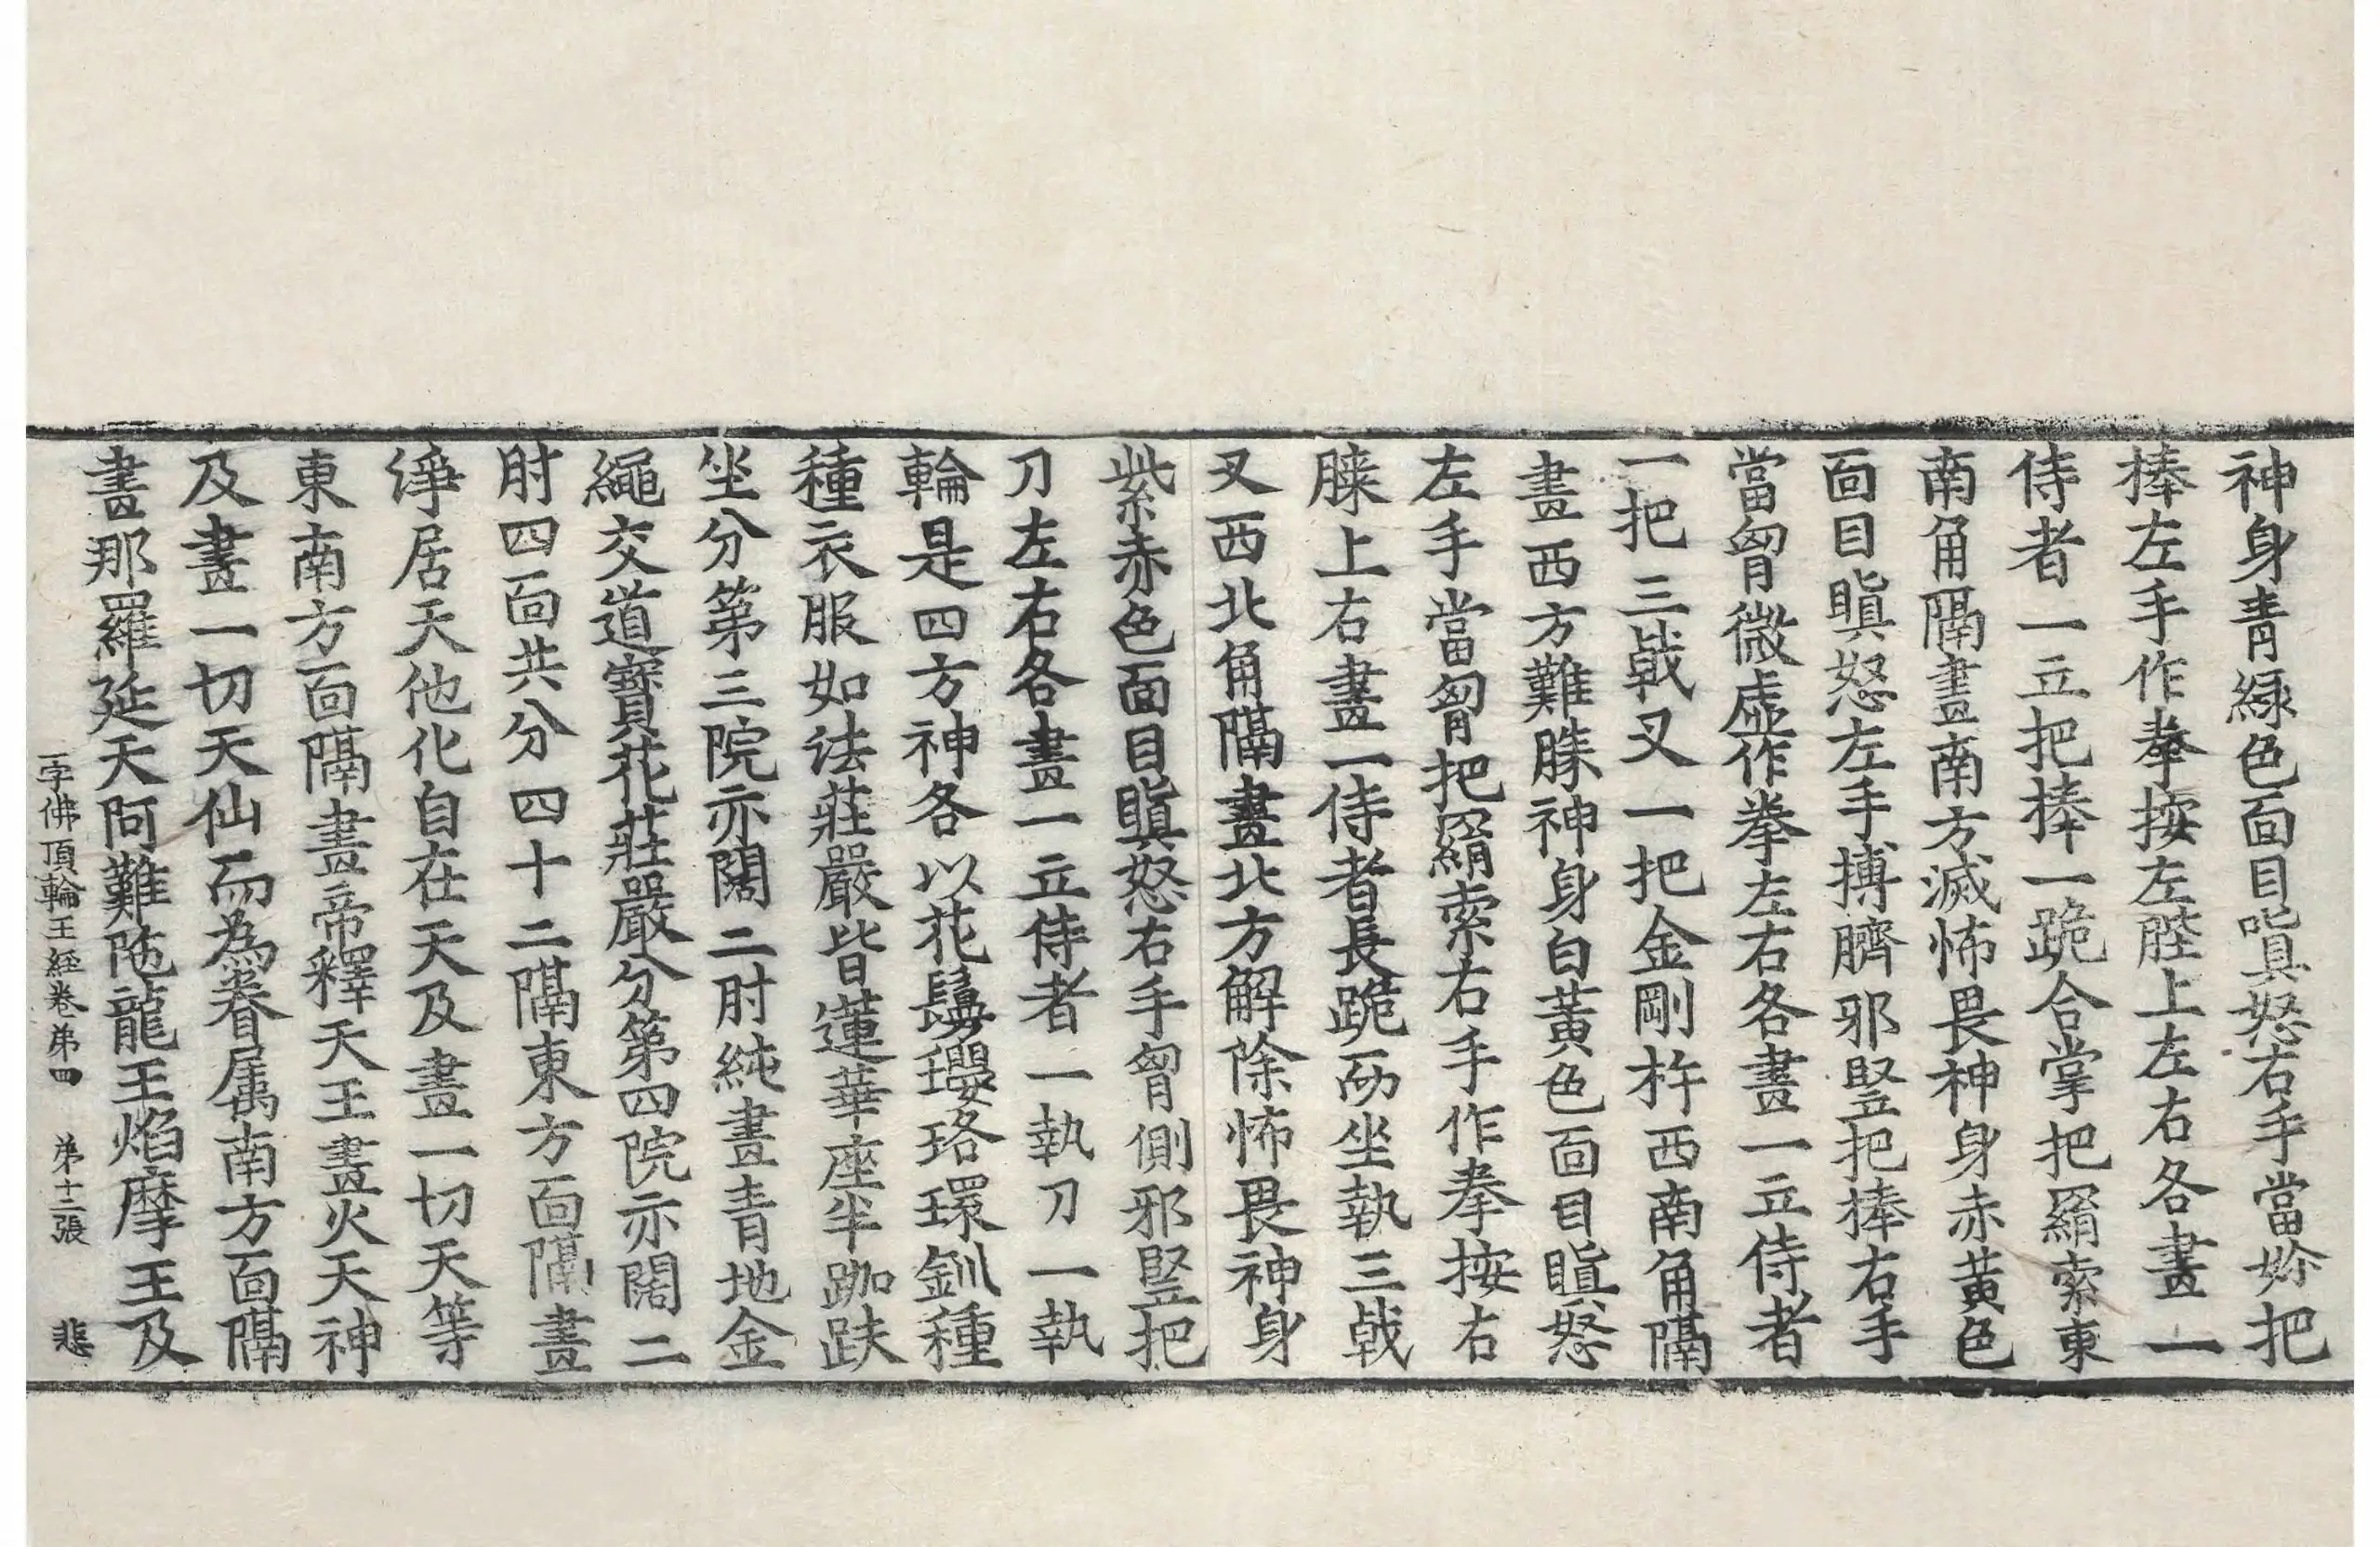 神身青緑色面目嗔怒右手當妳把
捧左手作拳按左䏶上左右各畫一
侍者一立把捧一跪合掌把羂索東
南角隔畫南方滅怖畏神身赤黃色
面目瞋怒左手搏臍邪竪把捧右手
當胷微虛作拳左右各畫一立侍者
一把三戟叉一把金剛杵西南角隔
畫西方難勝神身白黃色面目瞋怒
左手當胷把羂索右手作拳按右
䏶上右畫一侍者長跪而坐執三戟
叉西北角隔畫北方解除怖畏神身
紫赤色面目瞋怒右手胷側邪竪把
刀左右各畫一立侍者一執刀一執
輪是四方神各以花鬘瓔珞環釧種
種衣服如法莊嚴皆蓮華座半跏趺
坐分第三院亦闊二肘純畫青地金
繩交道寶花莊嚴分第四院亦闊二
肘四面共分四十二隔東方面隔畫
淨居天他化自在天及畫一切天等
東南方面隔畫帝釋天王畫火天神
及畫一切天仙而為眷属南方面隔
畫那羅延天阿難陁龍王焰摩王及
一字佛頂輪王經卷弟四 弟十二張 悲